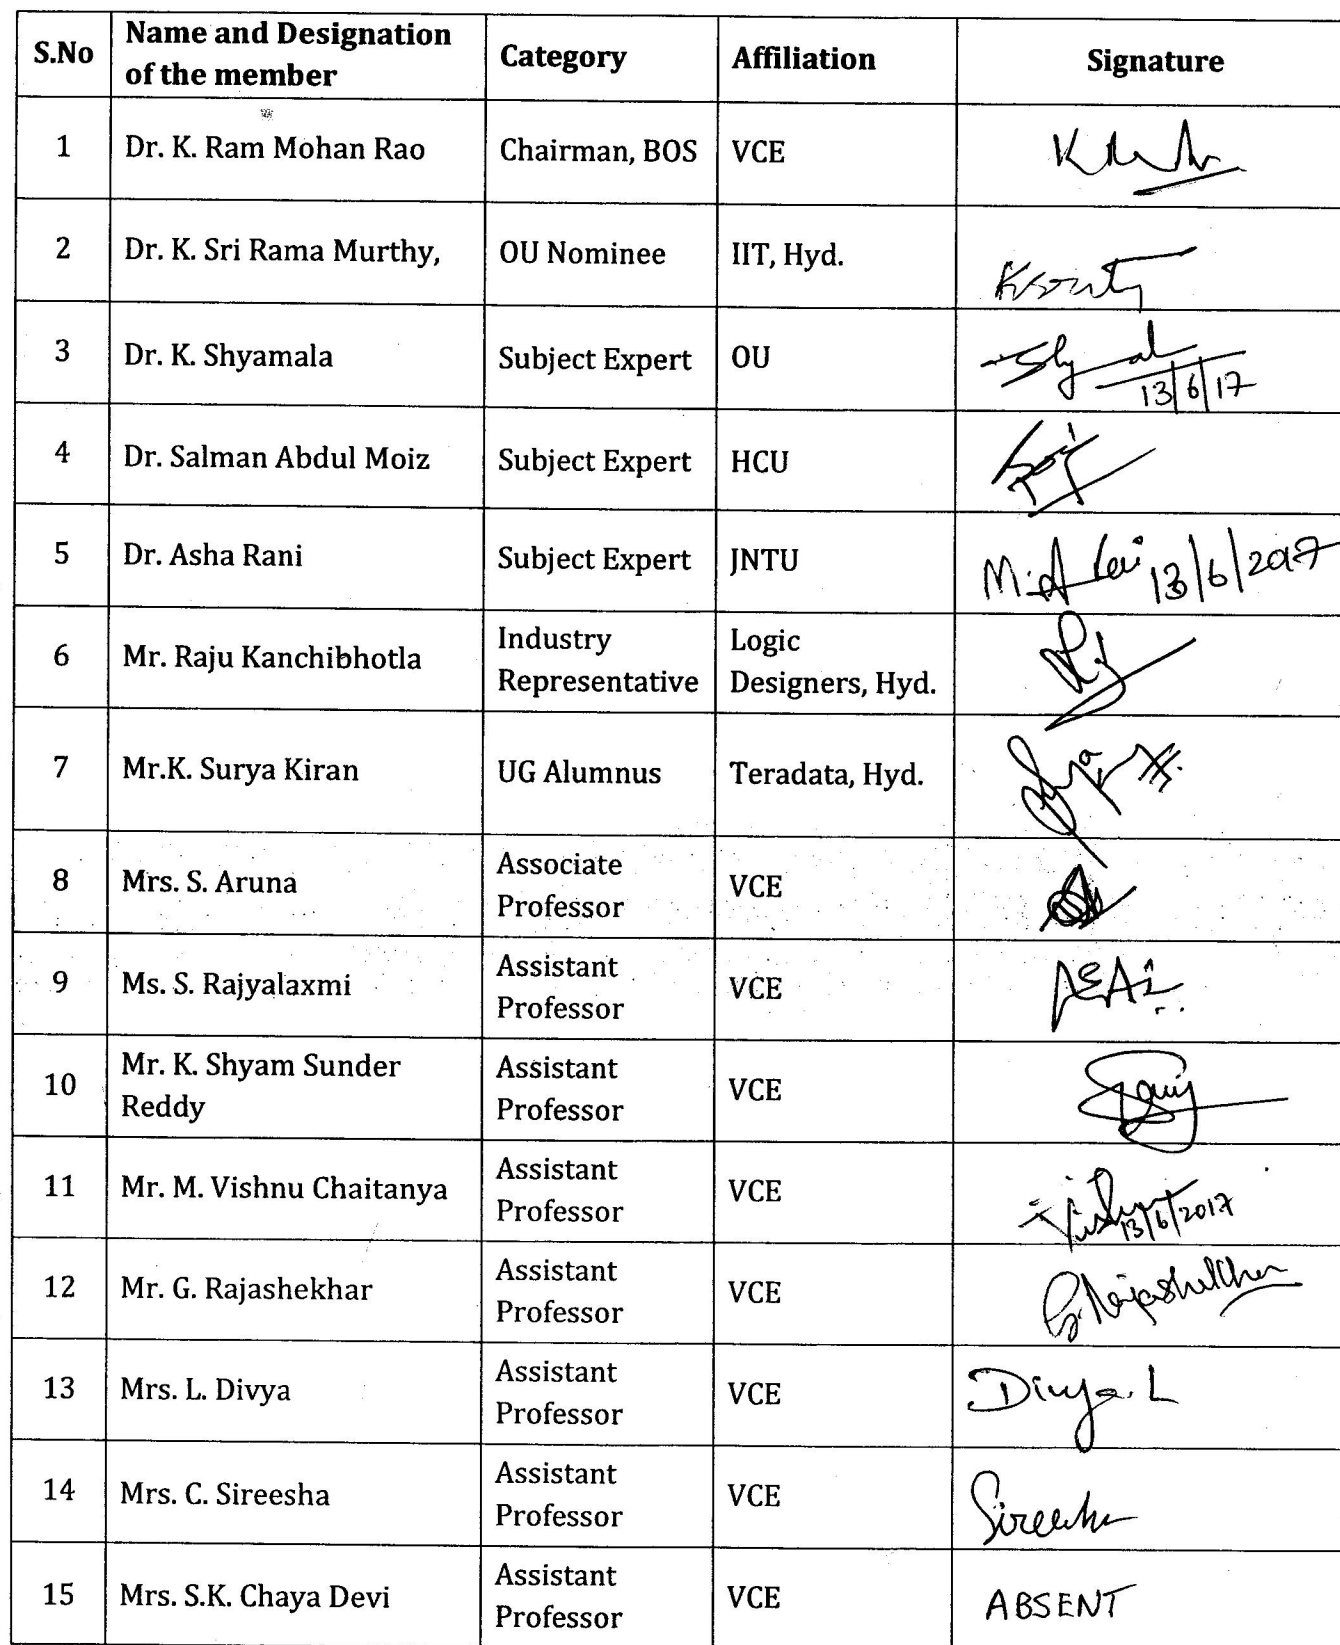 S.No Name and Designation of the member Category Affiliation Signature
1 Dr. K. Ram Mohan Rao Chairman, BOS VCE
2 Dr. K. Sri Rama Murthy, OU Nominee IIT, Hyd.
3 Dr. K. Shyamala Subject Expert OU 13/6/17
4 Dr. Salman Abdul Moiz Subject Expert HCU
5 Dr. Asha Rani Subject Expert JNTU 13/6/2017
6 Mr. Raju Kanchibhotla Industry Representative Logic Designers, Hyd.
7 Mr.K. Surya Kiran UG Alumnus Teradata, Hyd.
8 Mrs. S. Aruna Associate Professor VCE
9 Ms. S. Rajyalaxmi Assistant Professor VCE
10 Mr. K. Shyam Sunder Reddy Assistant Professor VCE
11 Mr. M. Vishnu Chaitanya Assistant Professor VCE 13/6/2017
12 Mr. G. Rajashekhar Assistant Professor VCE G. Rajashekher
13 Mrs. L. Divya Assistant Professor VCE Divya. L
14 Mrs. C. Sireesha Assistant Professor VCE Sireesha
15 Mrs. S.K. Chaya Devi Assistant Professor VCE ABSENT